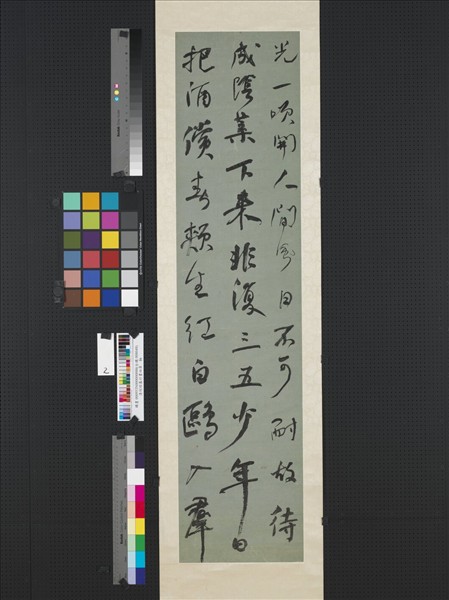 光一頃開人間日不可耐故待
成陰葉下來非復三五少年日
把酒償春頰生紅白鷗入群